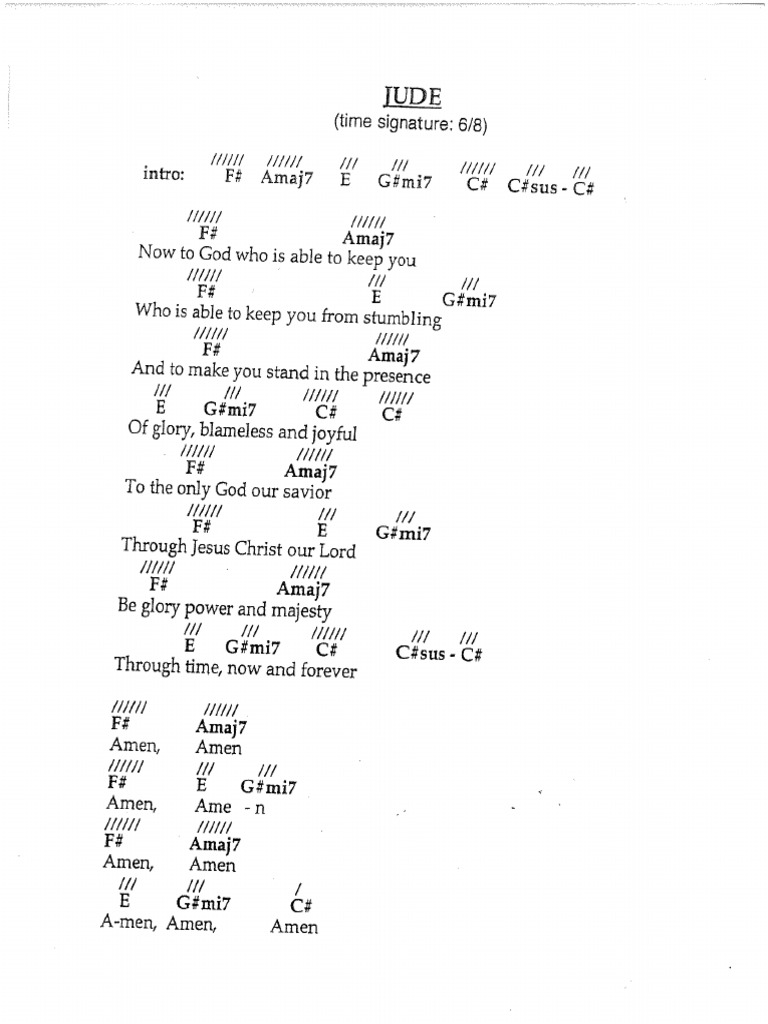 JUDE
(time signature: 6/8)
////// ////// /// /// ////// /// ///
intro: F# Amaj7 E G#mi7 C# C#sus - C#
////// //////
F# Amaj7
Now to God who is able to keep you
////// /// ///
F# E G#mi7
Who is able to keep you from stumbling
////// //////
F# Amaj7
And to make you stand in the presence
/// /// ////// //////
E G#mi7 C# C#
Of glory, blameless and joyful
////// //////
F# Amaj7
To the only God our savior
////// /// ///
F# E G#mi7
Through Jesus Christ our Lord
////// //////
F# Amaj7
Be glory power and majesty
/// /// ////// /// ///
E G#mi7 C# C#sus - C#
Through time, now and forever
////// //////
F# Amaj7
Amen, Amen
////// /// ///
F# E G#mi7
Amen, Ame - n
////// //////
F# Amaj7
Amen, Amen
/// /// /
E G#mi7 C#
A-men, Amen, Amen